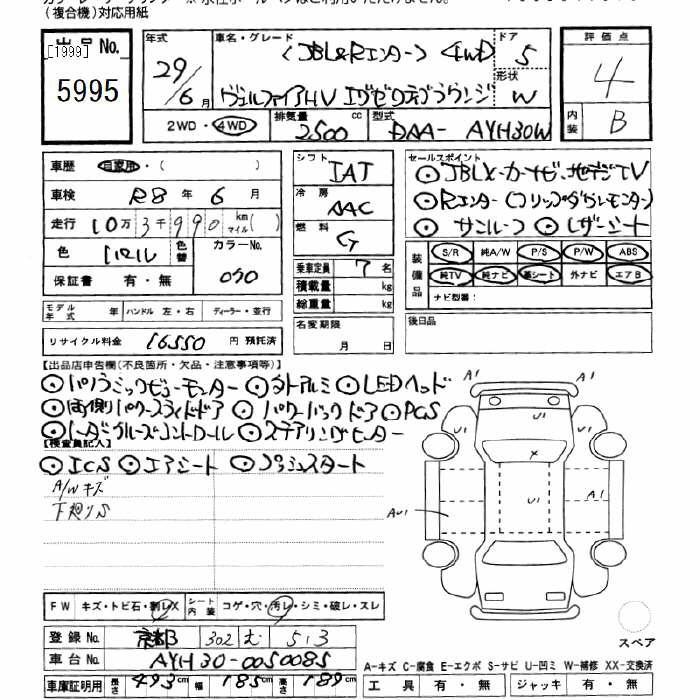 (複合機)対応用紙
出品 No.
[1999]
5995
年式
29/6 月
車名・グレード
(JBL&Rエンター) 4WD
ヴェルファイアHV エグゼクティブラウンジ
ドア
5
形状
W
評価点
4
内装
B
2WD・4WD
排気量
2500 cc
型式
DAA- AYH30W
車歴 自家用・( )
車検 R8 年 6 月
走行 10万 3千 990 km マイル( )
色
色替
カラーNo.
070
保証書 有・無
シフト
IAT
冷房
AAC
燃料
G
乗車定員 7 名
積載量 kg
総重量 kg
セールスポイント
⊙JBLX-カーナビ、地デジTV
⊙Rエンター(フリップダウンモニター)
⊙サンルーフ ⊙レザーシート
装備品
S/R 純A/W P/S P/W ABS
純TV 純ナビ 革シート 外ナビ エアB
ナビ型番:
モデル年式 年 ハンドル 左・右 ディーラー・並行
リサイクル料金 16550 円 預託済
名変期限
月 日
後日品
【出品店申告欄(不良箇所・欠品・注意事項等)】
⊙パノラミックビューモニター ⊙タトアルミ ⊙LEDヘッド
⊙両側パワースライドドア ⊙パワーバックドア ⊙PCS
⊙レーダークルーズコントロール ⊙ステアリングヒーター
【検査員記入】
⊙ICS ⊙エアシート ⊙プッシュスタート
A/Wキズ
下廻りS
A1
A1
U1
U1
X
U1
A1
AU1
スペア
FW キズ・トビ石・割レX シート内装 コゲ・穴・汚レ・シミ・破レ・スレ
登録 No. 京都 302 む 513
車台 No. AYH30-0050085
車庫証明用 長さ 493 cm 幅 185 cm 高さ 189 cm
A-キズ C-腐食 E-エクボ S-サビ U-凹ミ W-補修 XX-交換済
工具 有・無 ジャッキ 有・無